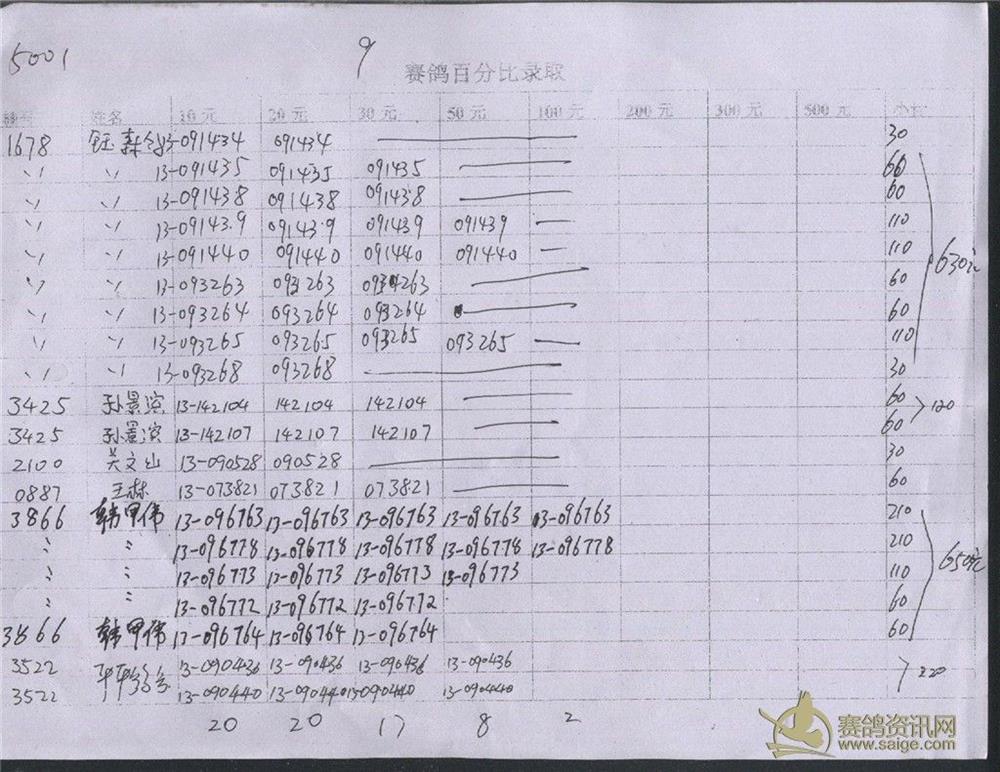 5001 9
赛鸽百分比录取
棚号 姓名 10元 20元 30元 50元 100元 200元 300元 500元 小计
1678 钰森鸽舍 091434 091434 30
〃 〃 13-091435 091435 091435 60
〃 〃 13-091438 091438 091438 60
〃 〃 13-091439 091439 091439 091439 — 110
〃 〃 13-091440 091440 091440 091440 — 110 630元
〃 〃 13-093263 093263 093263 60
〃 〃 13-093264 093264 093264 60
〃 〃 13-093265 093265 093265 093265 — 110
〃 〃 13-093268 093268 30
3425 孙景滨 13-142104 142104 142104 — 60 120
3425 孙景滨 13-142107 142107 142107 — 60
2100 关文山 13-090528 090528 — 30
0887 王林 13-073821 073821 073821 — 60
3866 韩甲伟 13-096763 13-096763 13-096763 13-096763 13-096763 210
〃 〃 13-096778 13-096778 13-096778 13-096778 13-096778 210
〃 〃 13-096773 13-096773 13-096773 13-096773 110 650元
〃 〃 13-096772 13-096772 13-096772 60
3866 韩甲伟 13-096764 13-096764 13-096764 60
3522 13-090436 13-090436 13-090436 13-090436 220
3522 13-090440 13-090440 13-090440 13-090440
20 20 17 8 2
赛鸽资讯网
www.saige.com